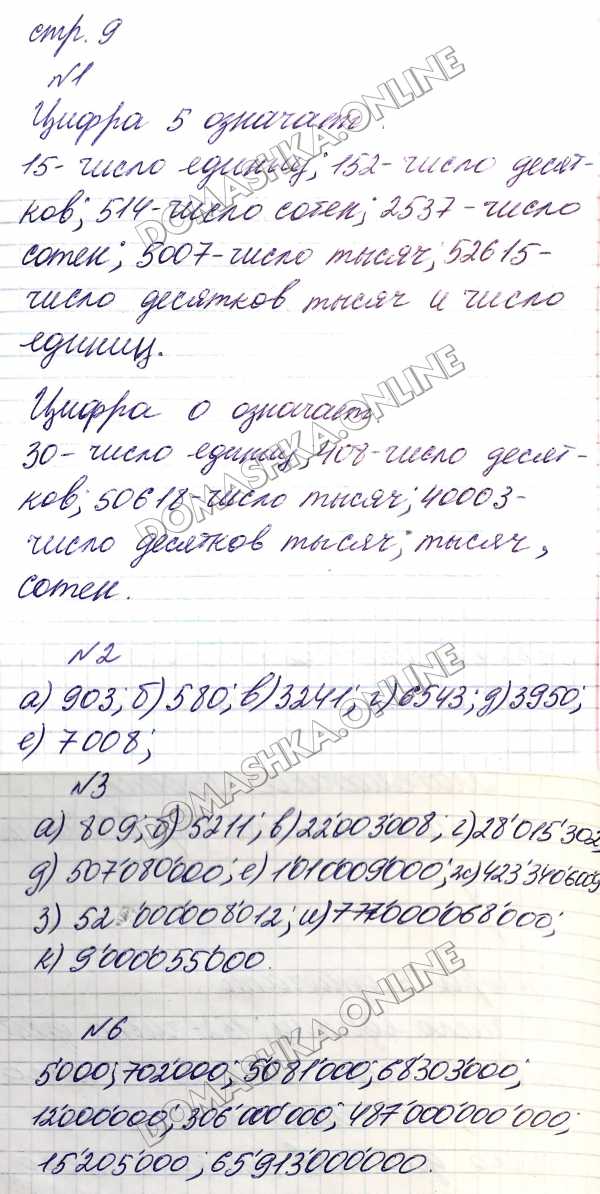 стр. 9
№1
Цифра 5 означает:
15- число единиц; 152- число десят-
ков; 514-число сотен; 2537- число
сотен; 5007-число тысяч; 52615-
число десятков тысяч и число
единиц.
Цифра 0 означает
30- число единиц, 408-число десят-
ков; 50618-число тысяч; 40003-
число десятков тысяч, тысяч,
сотен.
№2
а) 903; б) 580; в) 3241; г) 6543; д) 3950;
е) 7008;
№3
а) 809; б) 5'211; в) 22'003'008; г) 28'015'302;
д) 507'080'000; е) 1'010'009'000; ж) 423'340'600
з) 52 000'008'012; и) 777'000'068'000;
к) 9'000'055'000.
№6
5'000; 702'000; 5'081'000; 68'303'000;
12'000'000; 306'000'000; 487'000'000'000;
15'205'000; 65'913'000'000.
DOMASHKA.ONLINE
DOMASHKA.ONLINE
DOMASHKA.ONLINE
DOMASHKA.ONLINE